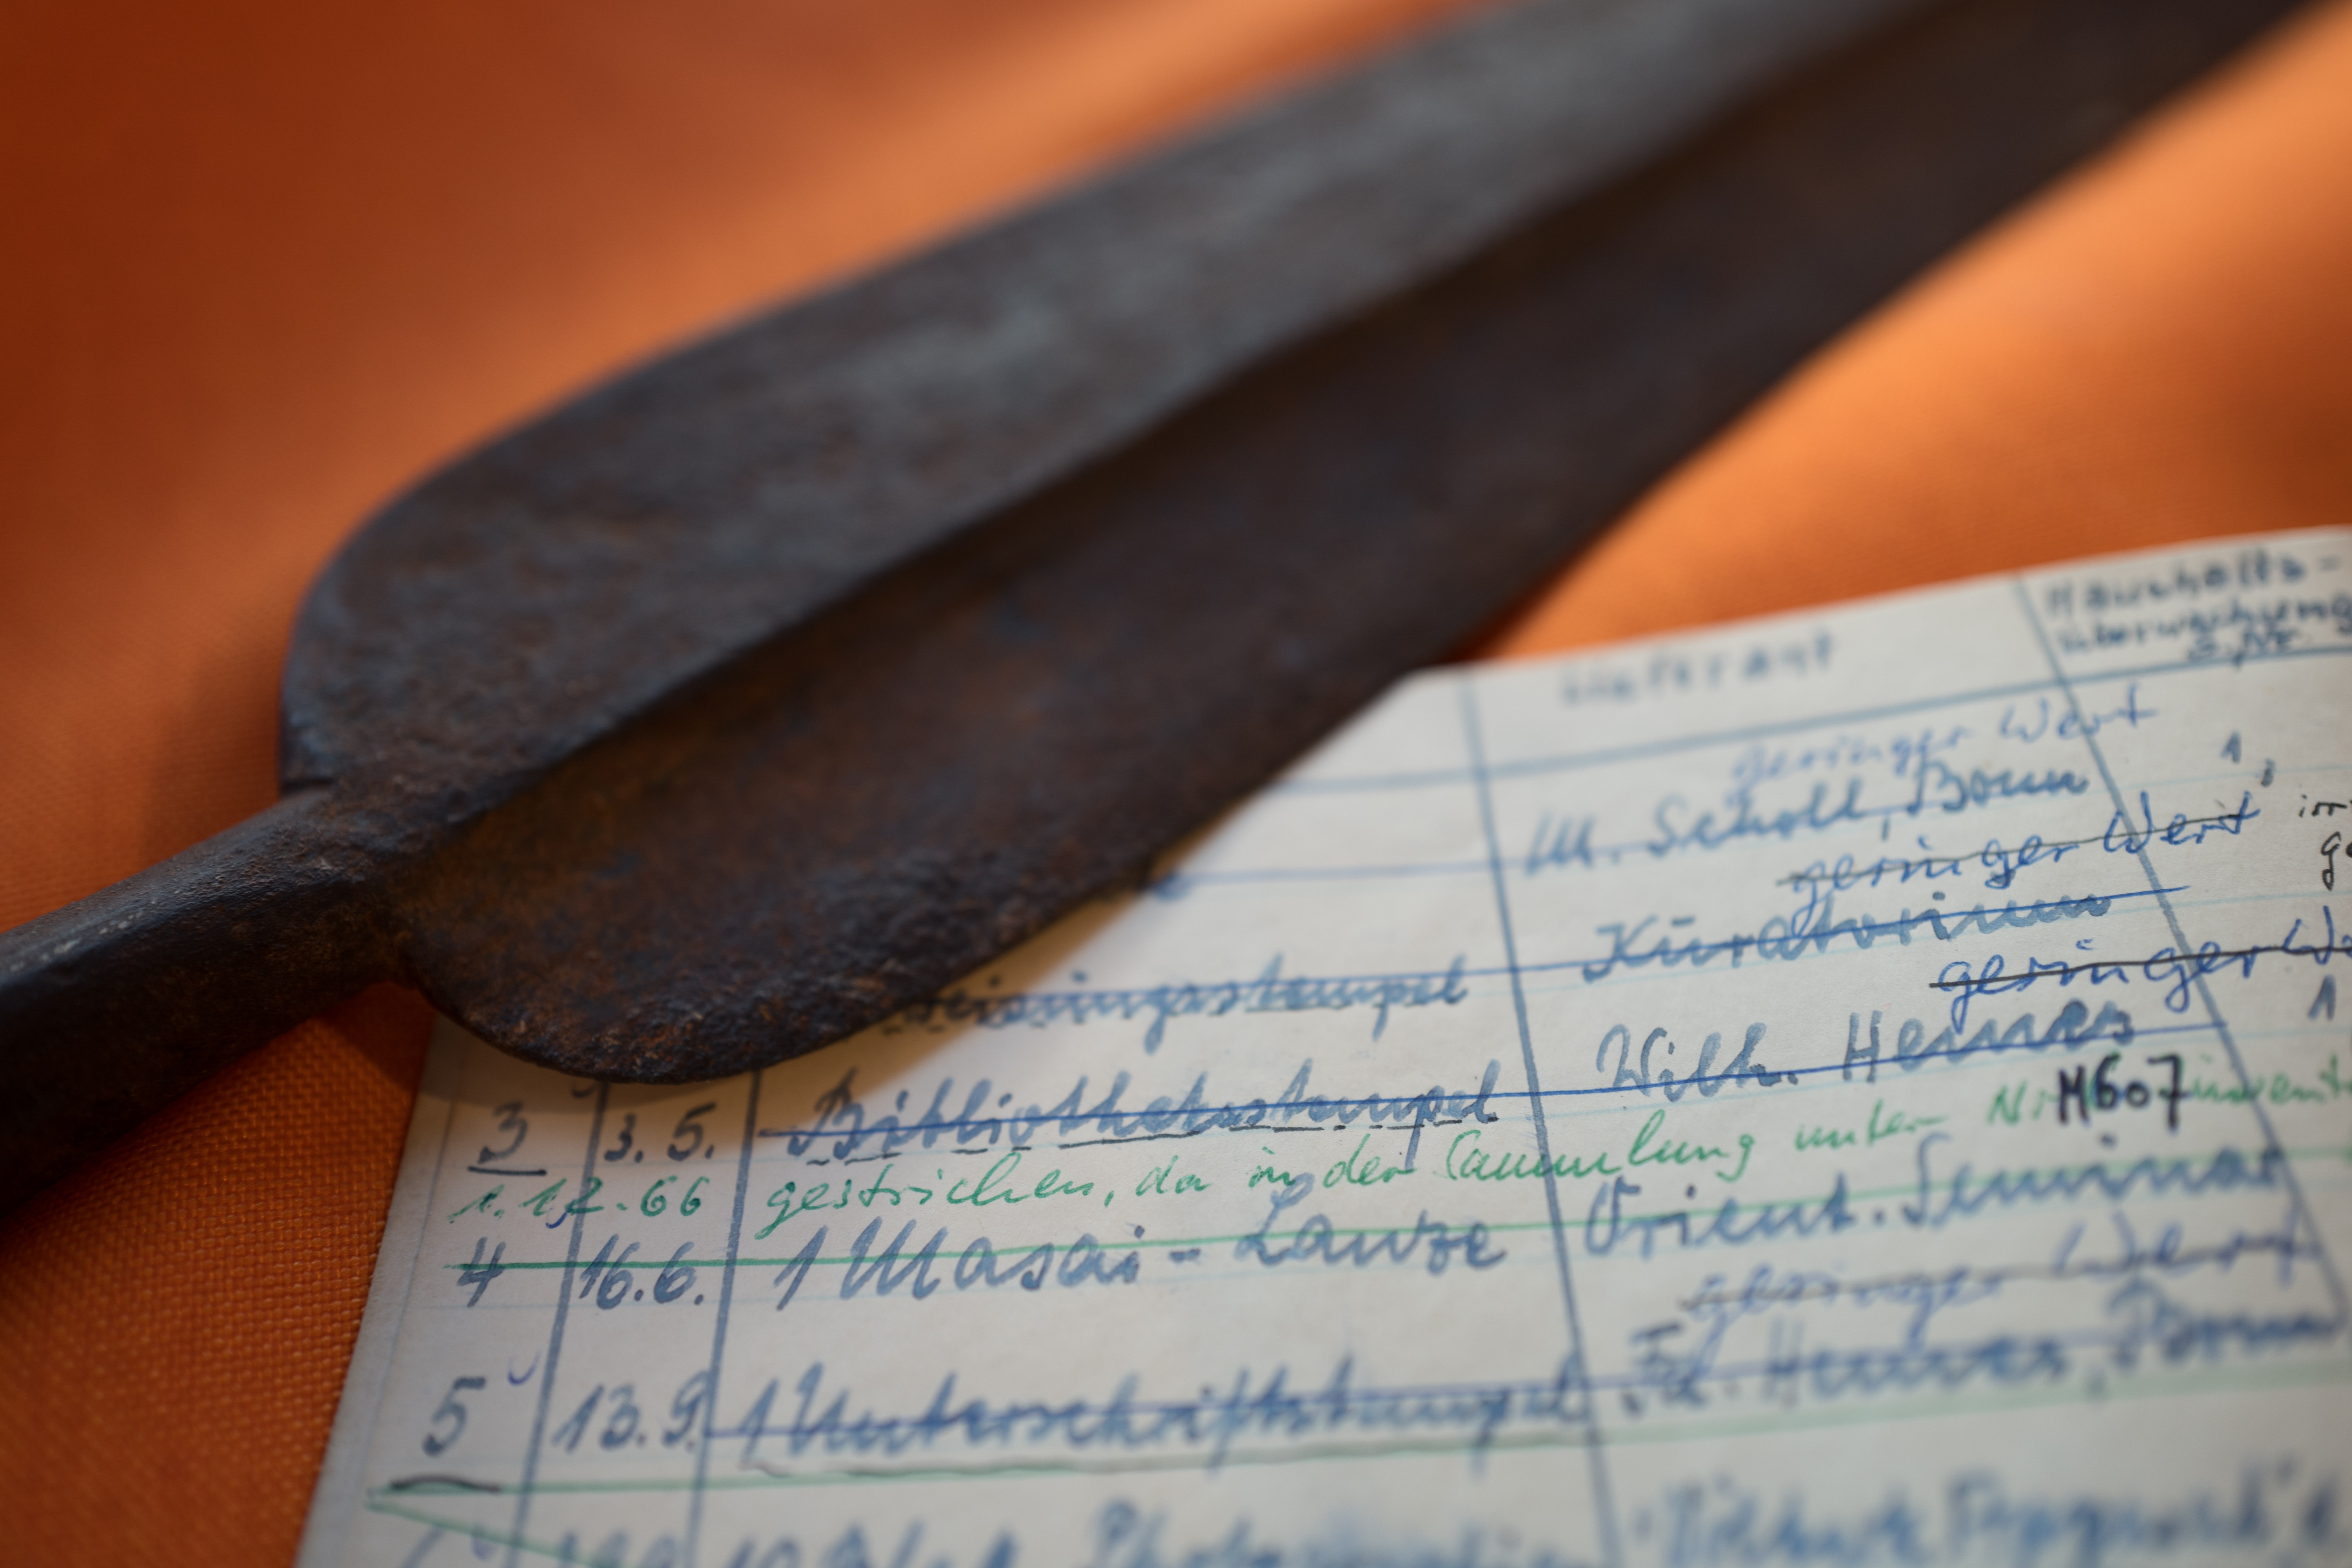 Lieferant
Haushalts-
überwachung
L. Nr.
geringer Wert
M. Scholl, Bonn
1,
geringer Wert
Kuratorium
geringer
Wilh. Hennes
1
3 3.5. Bibliotheksstempel
1.12.66 gestrichen, da in der Sammlung unter Nr. M607
4 16.6. 1 Masai-Lanze Orient. Seminar
geringer Wert
5 13.9. 1 Unterschriftstempel Fa. Hennes, Bonn